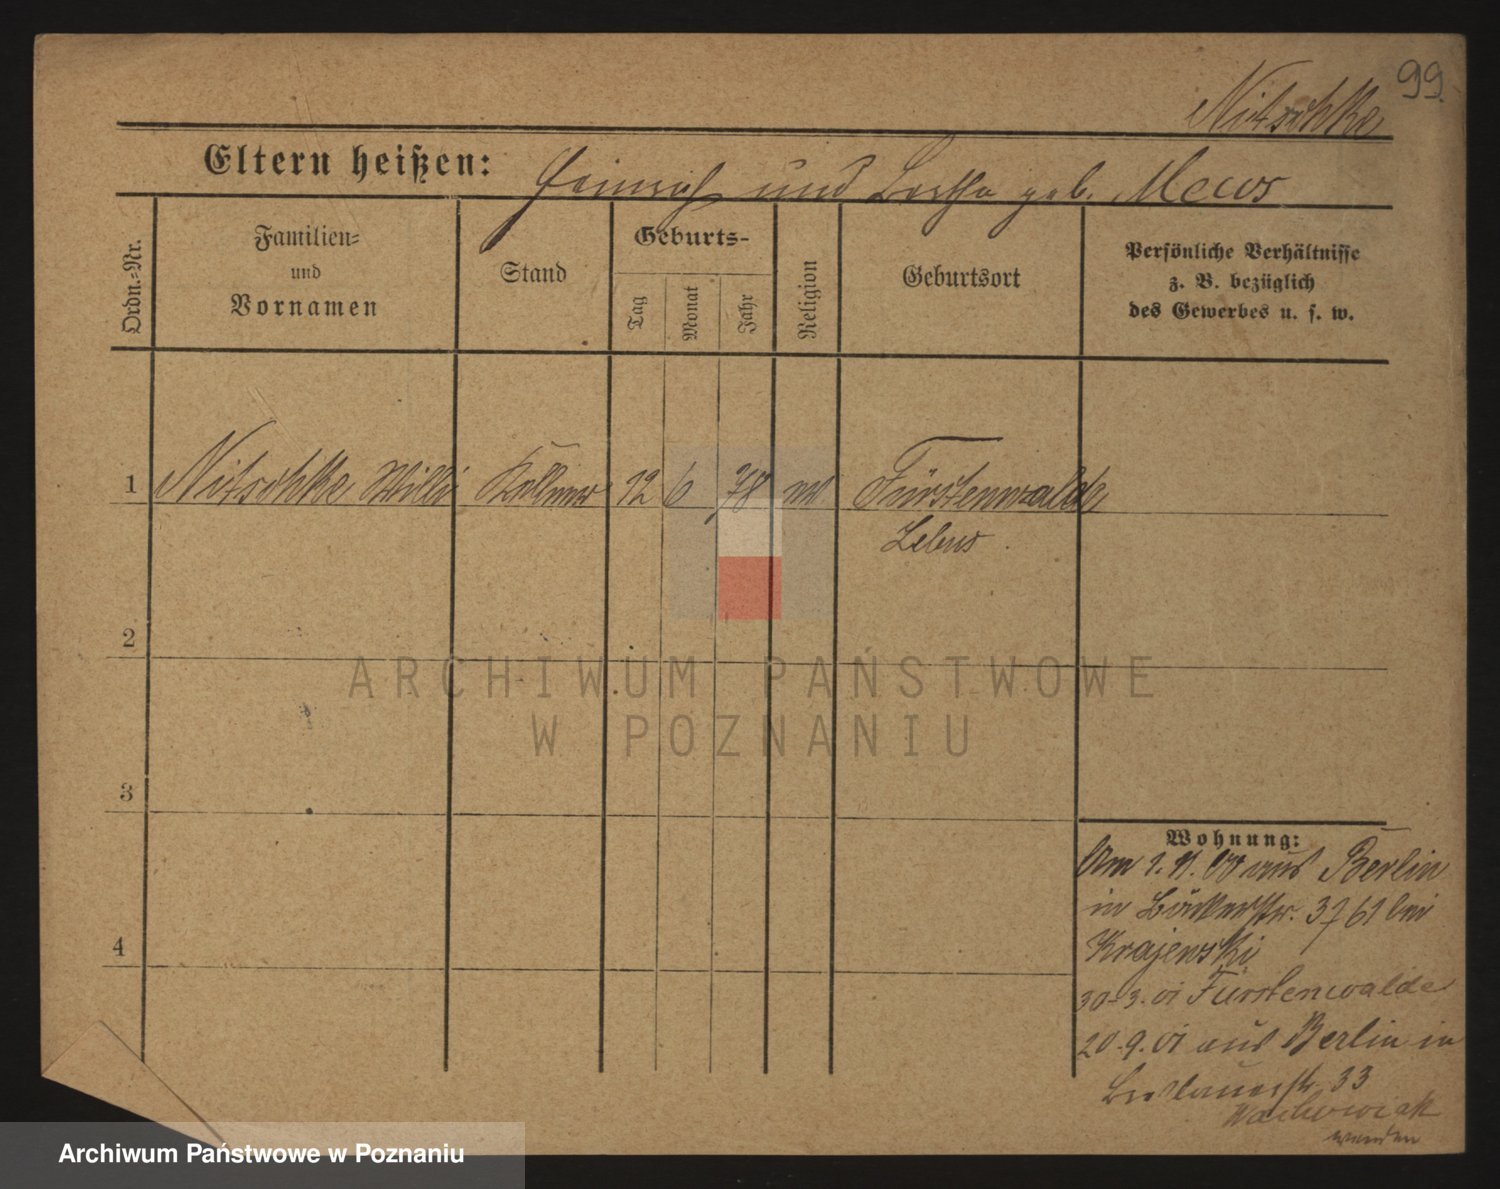 99
Nitschke
Eltern heißen: Heinrich und Bertha geb. Mews
Ordn.=Nr.
Familien=
und
Vornamen
Stand
Geburts-
Tag
Monat
Jahr
Religion
Geburtsort
Persönliche Verhältnisse
z. B. bezüglich
des Gewerbes u. s. w.
1 Nitschke Willi Kellner 12 6 78 Fürstenwalde
Lebus
2
3
4
Wohnung:
Am 1. 11. 00 aus Berlin
in Bäckerstr. bei
Krajewski
30-3. 01 Fürstenwalde
20-9. 01 aus Berlin in
Breslauerstr. 33
Wachowiak
wenden
ARCHIWUM PAŃSTWOWE
W POZNANIU
Archiwum Państwowe w Poznaniu